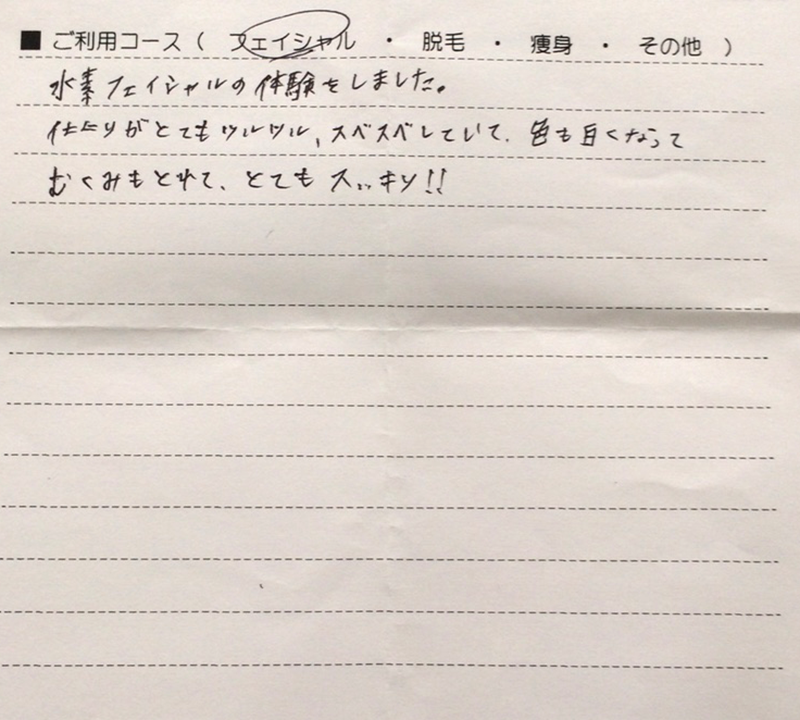 ■ ご利用コース（ フェイシャル ・ 脱毛 ・ 痩身 ・ その他 ）
水素フェイシャルの体験をしました。
仕上りがとてもツルツル、スベスベしていて、色も白くなって
むくみもとれて、とてもスッキリ!!